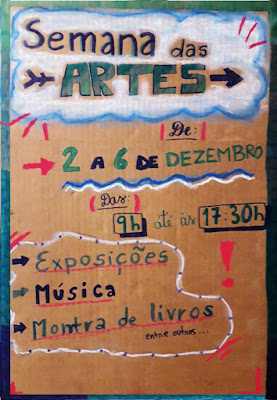 Semana das
ARTES
De:
2 A 6 DE DEZEMBRO
Das:
9h até às 17:30h
Exposições
Música
Montra de livros
entre outros...